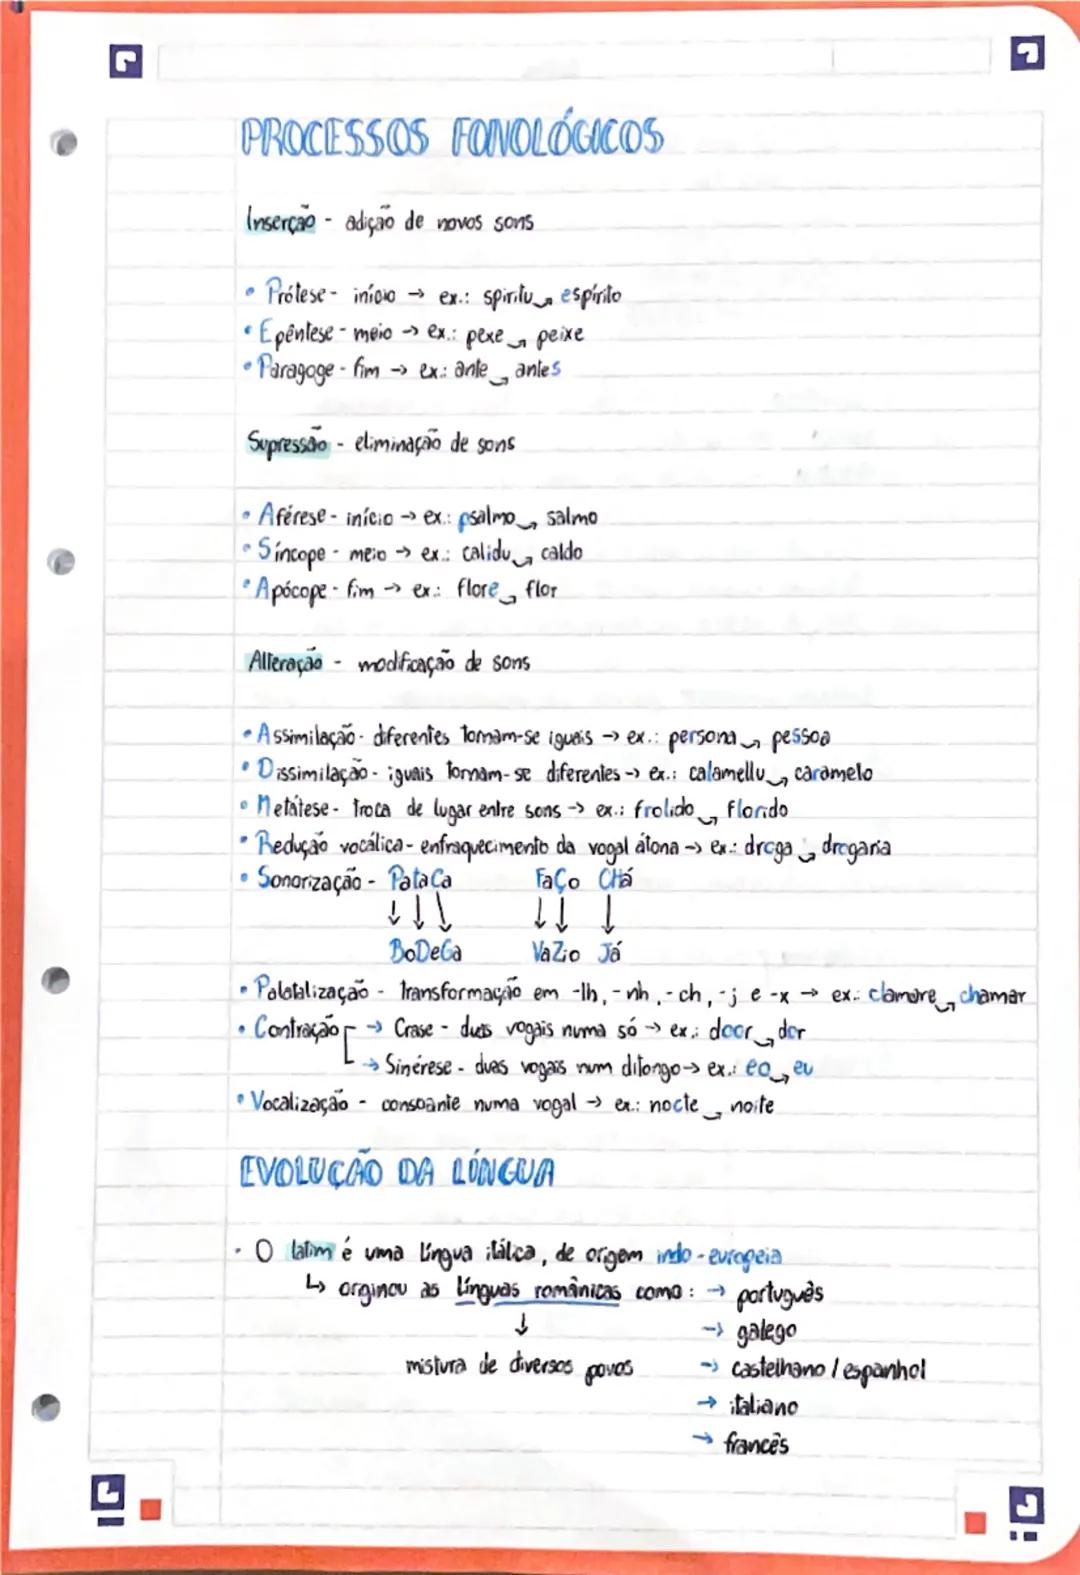 PROCESSOS FONOLÓGICOS
Inserção - adição de novos sons
• Prótese - início → ex.: spiritu → espírito
• Epêntese - meio → ex.: pexe → peixe
• Paragoge - fim → ex.: ante → antes
Supressão - eliminação de sons
• Aférese - início → ex.: psalmo → salmo
• Síncope - meio → ex.: calidu → caldo
• Apócope - fim → ex.: flore → flor
Alteração - modificação de sons
• Assimilação - diferentes tornam-se iguais → ex.: persona → pessoa
• Dissimilação - iguais tornam-se diferentes → ex.: calamellu → caramelo
• Metátese - troca de lugar entre sons → ex.: frolido → florido
• Redução vocálica - enfraquecimento da vogal átona → ex.: droga → drogaria
• Sonorização - PaTaCa FaÇo CHá
↓ ↓ ↓ ↓ ↓ ↓
BoDeGa VaZio Já
• Palatalização - transformação em -lh, -nh, -ch, -j e -x → ex.: clamare → chamar
• Contração → Crase - duas vogais numa só → ex.: door → dor
→ Sinérese - duas vogais num ditongo → ex.: eo → eu
• Vocalização - consoante numa vogal → ex.: nocte → noite
EVOLUÇÃO DA LÍNGUA
• O latim é uma língua itálica, de origem indo-europeia
↳ orginou as línguas românicas como: → português
↓ → galego
mistura de diversos povos → castelhano / espanhol
→ italiano
→ francês